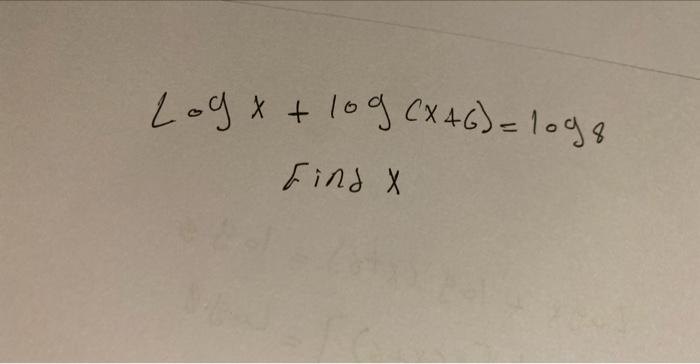 Log x + log (x+6) = log 8
Find x